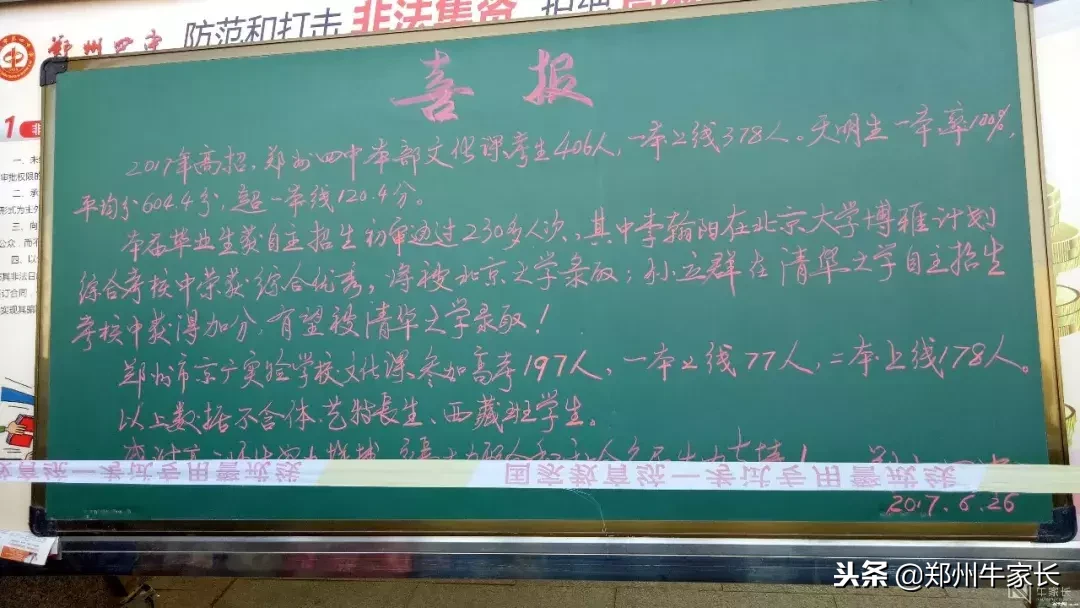 郑州四中
防范和打击非法集资
喜报
2017年高招，郑州四中本部文化课考生406人，一本上线378人。天明生一本率100%，
平均分604.4分，超一本线120.4分。
本届毕业生获自主招生初审通过230多人次，其中李翰阳在北京大学博雅计划
综合考核中荣获综合优秀，将被北京大学录取；孙立群在清华大学自主招生
考核中获得加分，有望被清华大学录取！
郑州市京广实验学校文化课参加高考197人，一本上线77人，二本上线178人。
以上数据不含体、艺特長生、西藏班学生。
教育统一考试专用警戒线
国家教育统一考试专用警戒线
2017.6.26
头条@郑州牛家长
牛家长